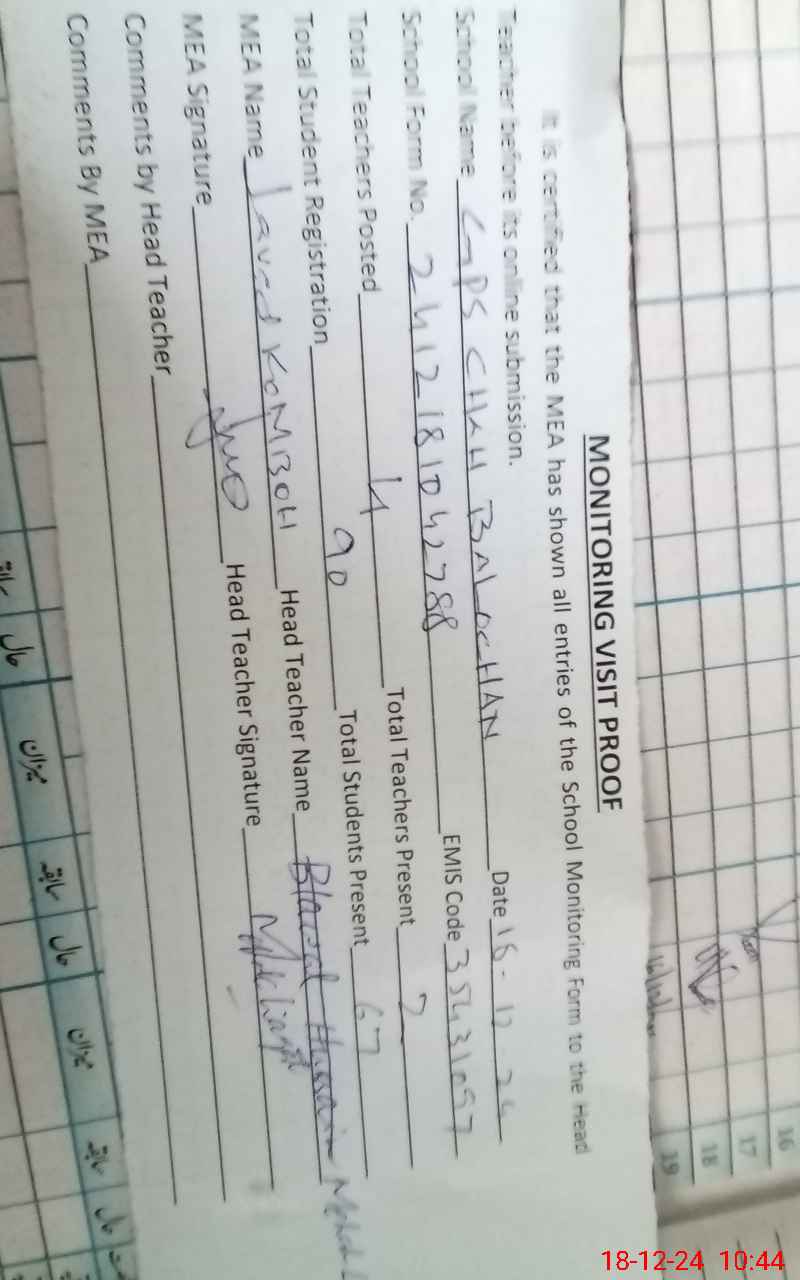 MONITORING VISIT PROOF
It is certified that the MEA has shown all entries of the School Monitoring Form to the Head
Teacher before its online submission.
School Name GPS CHAH BALOCHAN Date 18-12 24
School Form No. 2412181042788 EMIS Code 35431057
Total Teachers Posted 4 Total Teachers Present 2
Total Student Registration 90 Total Students Present 67
MEA Name Javed KOMBOH Head Teacher Name Hussain
MEA Signature Head Teacher Signature
Comments by Head Teacher
Comments By MEA
16
17
18
19
حال
میزان
سابقہ
حال
میزان
سابقہ
حال
18-12-24 10:44